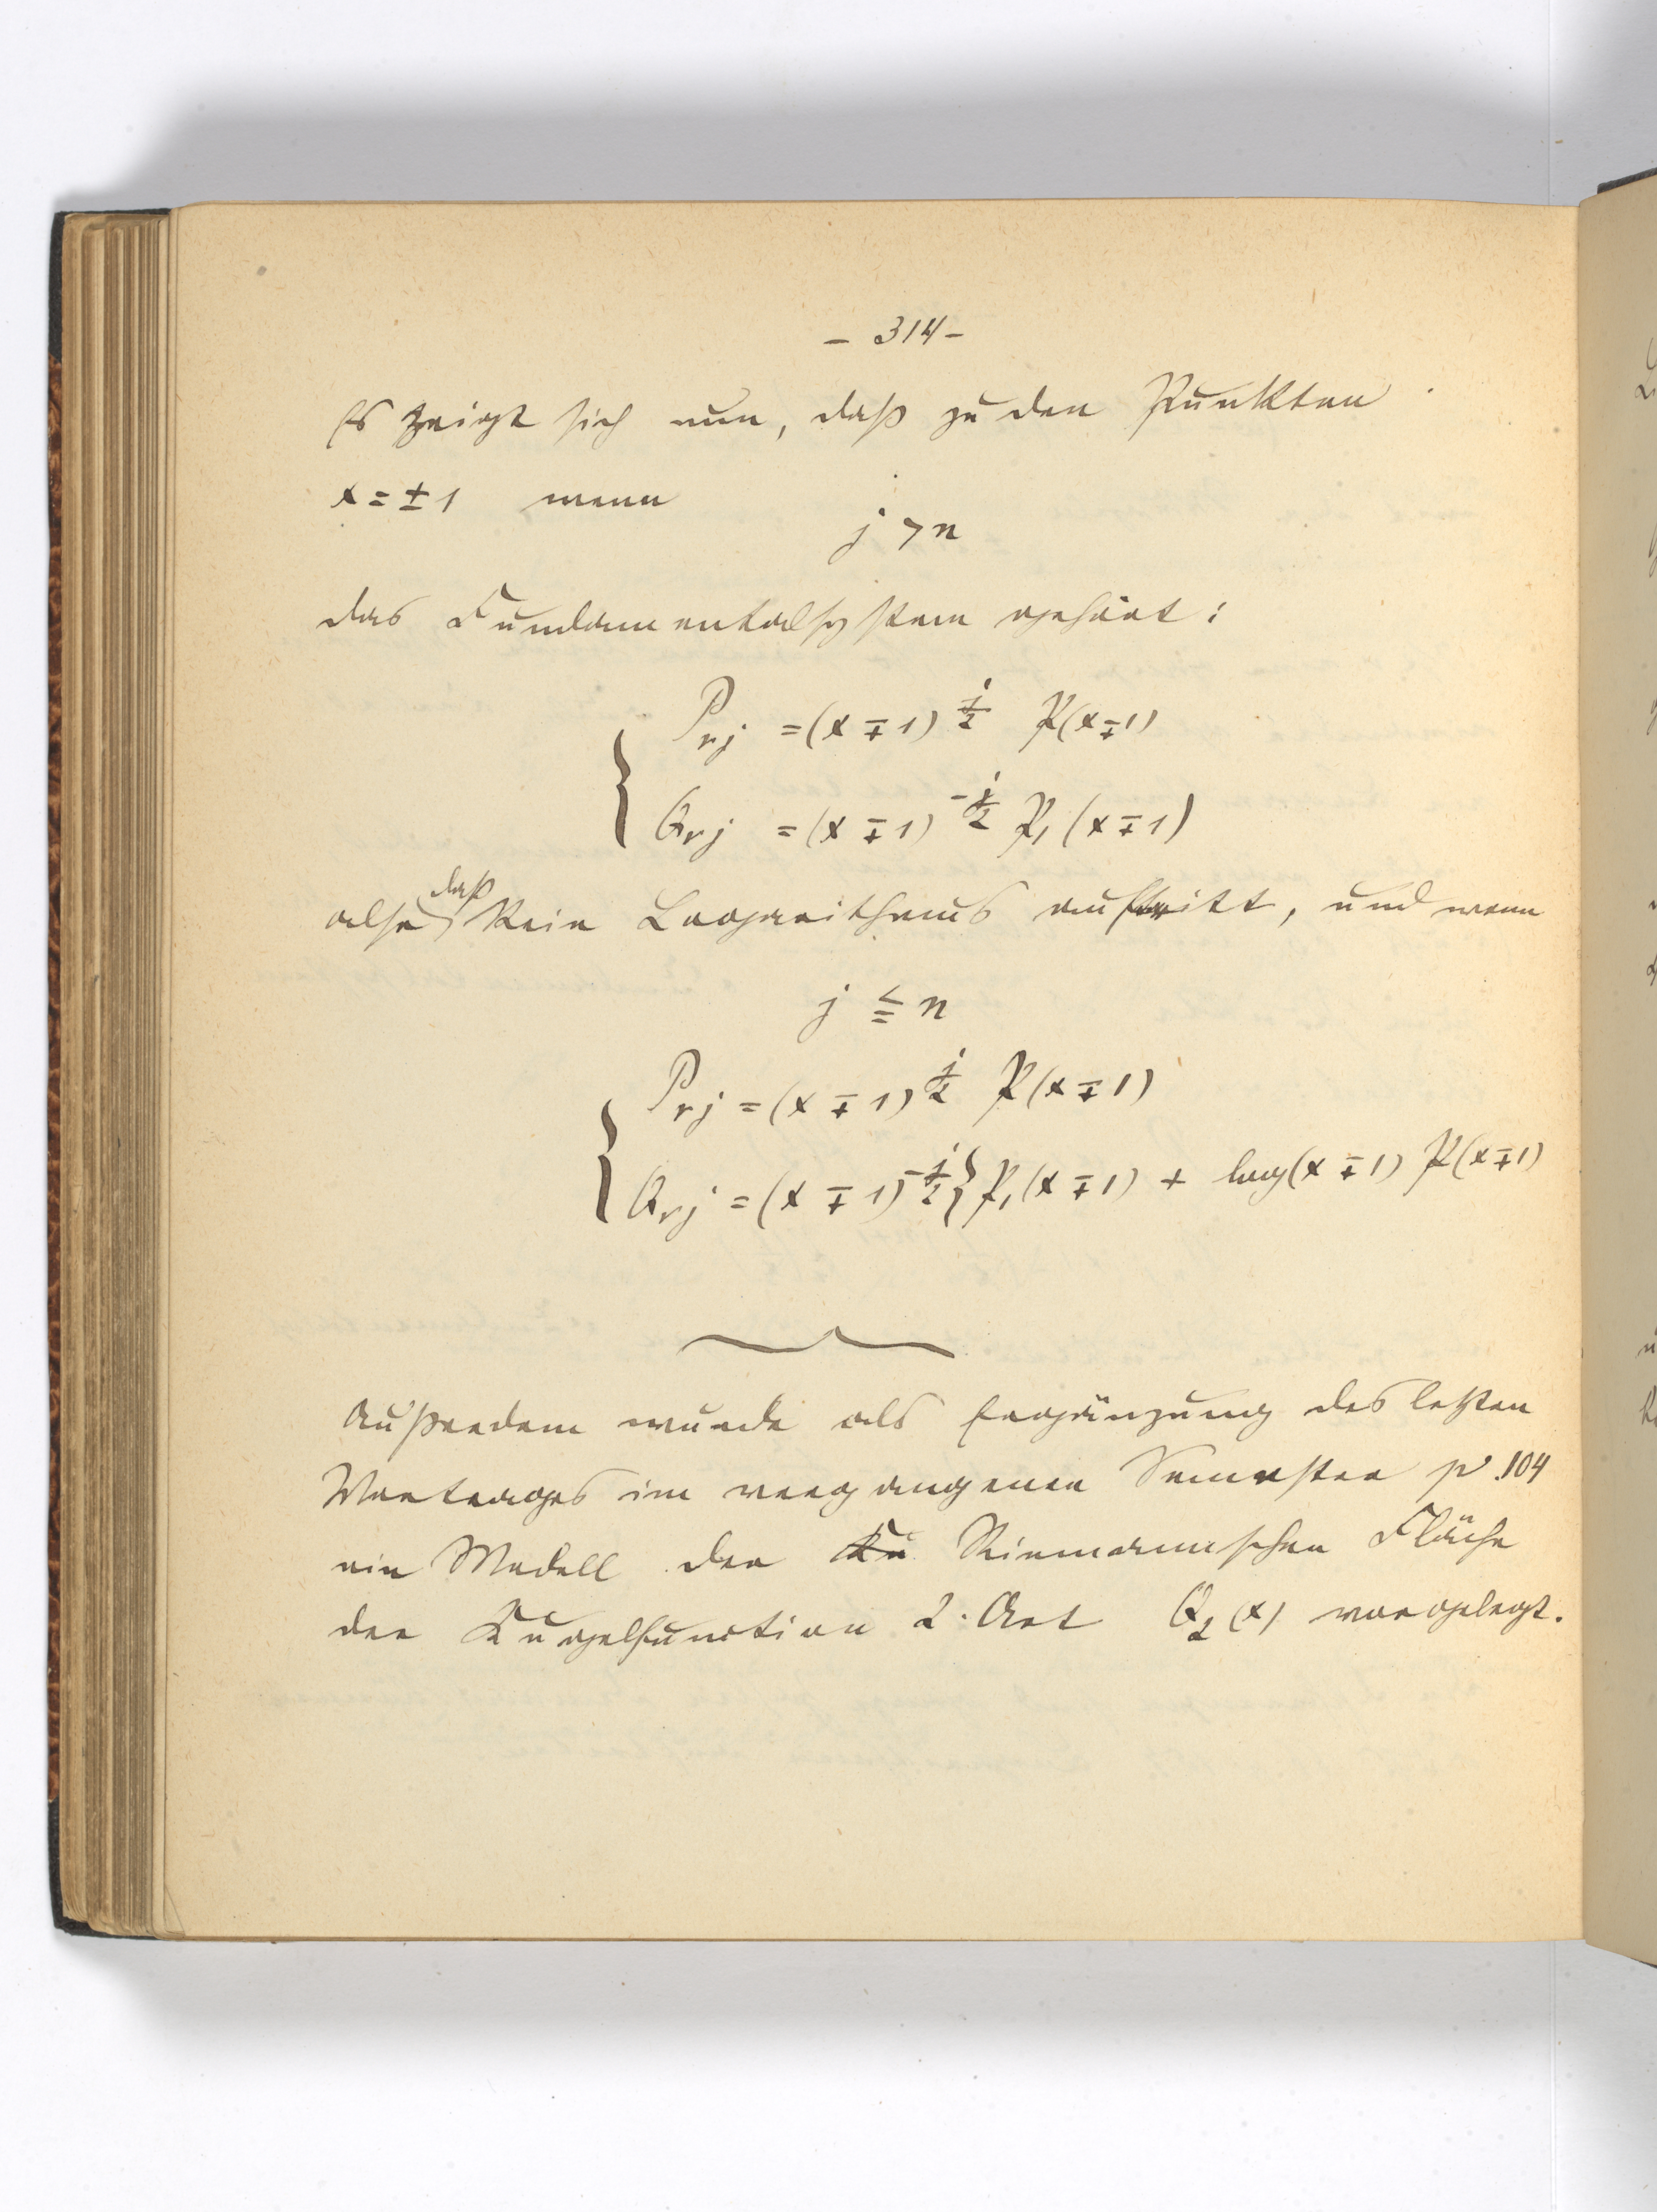 – 314 –
Es zeigt sich nun, daß zu den Punkten
x = ± 1 wenn
j > n
das Fundamentalsystem gehört:
P_{nj} = (x ∓ 1)^{j/2} P(x ∓ 1)
Q_{nj} = (x ∓ 1)^{-j/2} P_1(x ∓ 1)
also daß kein Logarithmus auftritt, und wenn
j ≦ n
P_{nj} = (x ∓ 1)^{j/2} P(x ∓ 1)
Q_{nj} = (x ∓ 1)^{-j/2} { P_1(x ∓ 1) + log(x ∓ 1) P(x ∓ 1)
Außerdem wurde als Ergänzung des letzten
Vortrages im vergangenen Semester p. 104
ein Modell der Riemannschen Fläche
der Kugelfunction 2. Art Q_2(x) vorgelegt.